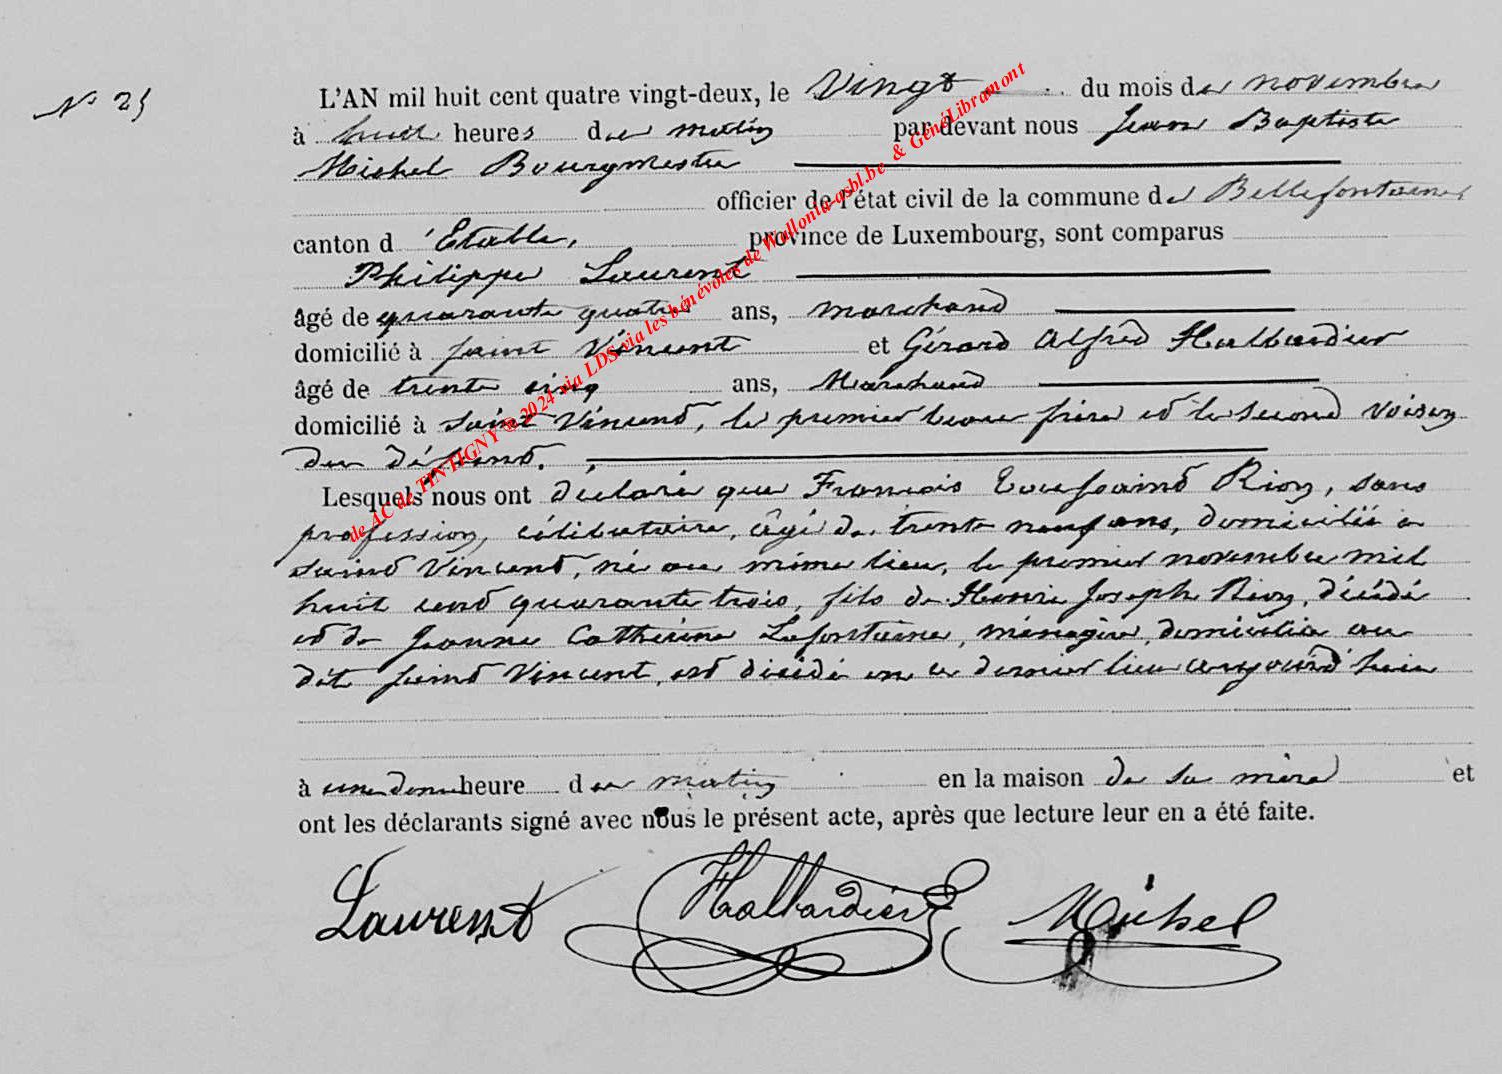 N° 25
L'AN mil huit cent quatre vingt-deux, le Vingt du mois de novembre
à huit heures du matin par devant nous Jean Baptiste
Michel Bourgmestre
officier de l'état civil de la commune de Bellefontaine
canton d'Etalle, province de Luxembourg, sont comparus
Philippe Laurent
âgé de quarante quatre ans, marchand
domicilié à Saint Vincent et Gérard Alfred Hallardier
âgé de trente cinq ans, Marchand
domicilié à Saint Vincent, le premier beau frère et le second voisin
du défunt.
Lesquels nous ont déclaré que François Toussaint Rion, sans
profession, célibataire, âgé de trente neuf ans, domicilié à
Saint Vincent, né au même lieu, le premier novembre mil
huit cent quarante trois, fils de Henri Joseph Rion, décédé
et de Jeanne Catherine Lafontaine, ménagère, domiciliée au
dit Saint Vincent, est décédé en ce dernier lieu aujourd'hui
à une demi heure du matin en la maison de sa mère et
ont les déclarants signé avec nous le présent acte, après que lecture leur en a été faite.
Laurent Hallardier Michel
de AC de TINTIGNY © 2024 via LDS via les bénévoles de Wallonia-asbl.be & GénéLibramont